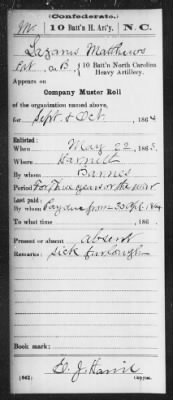 (Confederate.)
M 10 Batt'n H. Art'y. N. C.
Lazarus Matthews
Pvt, Co. B, 10 Batt'n North Carolina
Heavy Artillery.
Appears on
Company Muster Roll
of the organization named above,
for Sept & Oct, 1864
Enlisted:
When May 22, 1863.
Where Harnett
By whom Barnes
Period For Three years or the war
Last paid:
By whom Pay due from 30 Apl. 1864
To what time , 186 .
Present or absent absent
Remarks: Sick furlough
Book mark:
(642) Copyist.